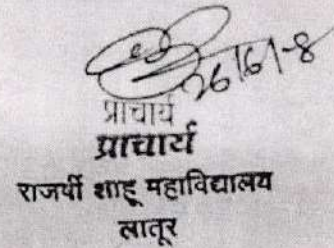 26/6/-8
प्राचार्य
प्राचार्य
राजर्षी शाहू महाविद्यालय
लातूर